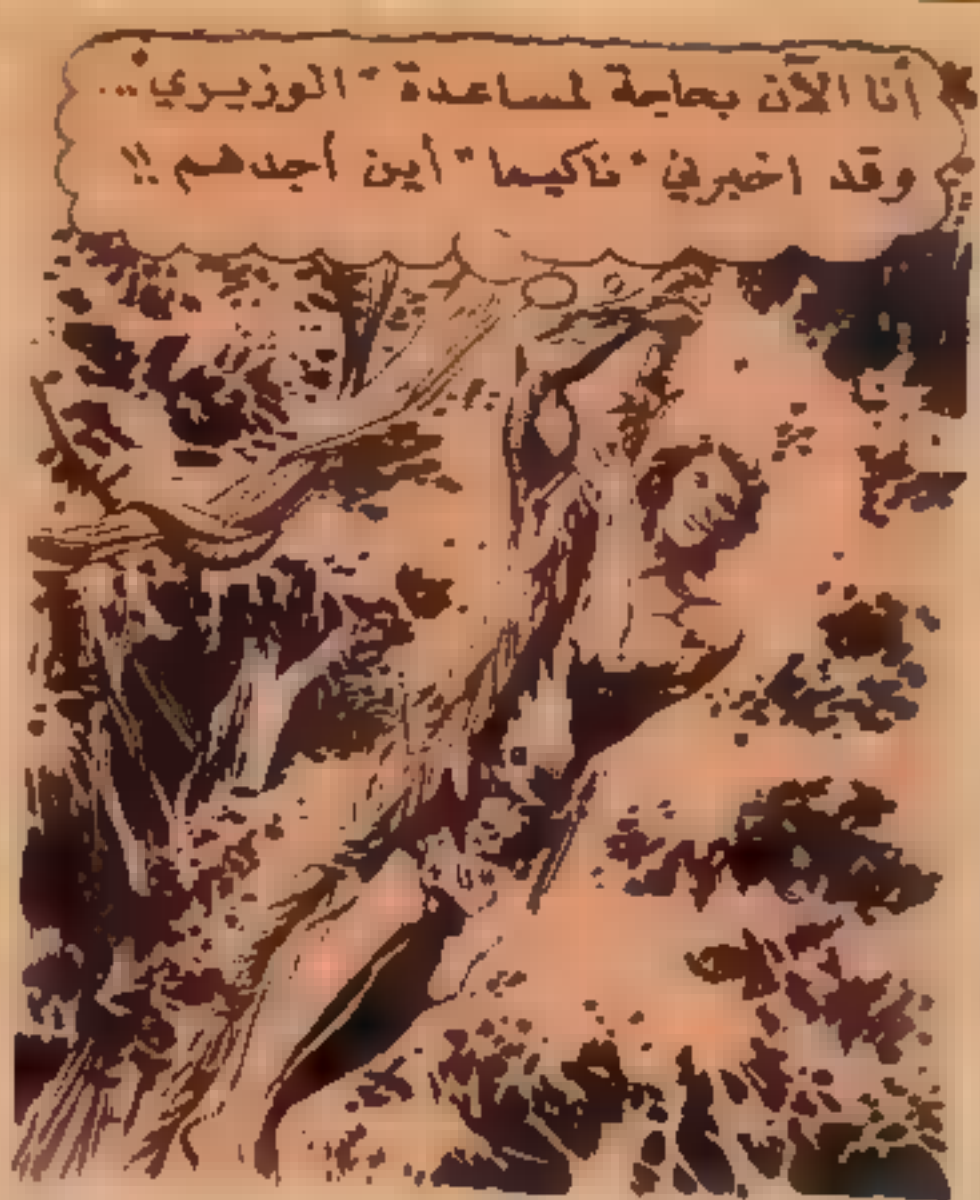 أنا الآن بحاجة لمساعدة "الوزيري"..
وقد اخبرني "ناكيما" أين أجدهم !!